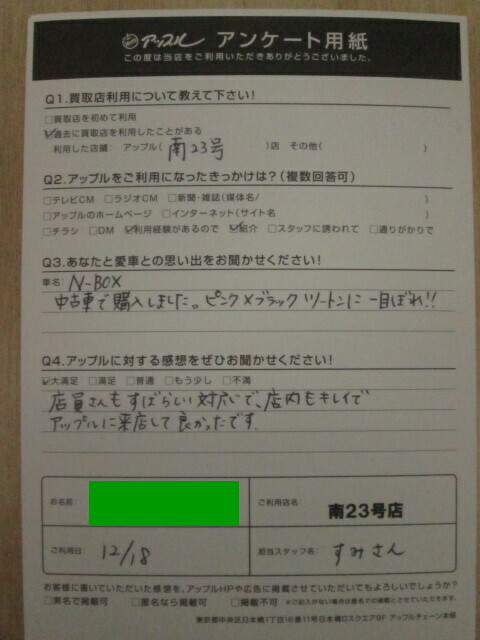 アップル アンケート用紙
この度は当店をご利用いただきありがとうございました。
Q1.買取店利用について教えて下さい!
□買取店を初めて利用
☑過去に買取店を利用したことがある
利用した店舗: アップル( 南23号 )店 その他( )
Q2.アップルをご利用になったきっかけは?(複数回答可)
□テレビCM □ラジオCM □新聞・雑誌(媒体名/ )
□アップルのホームページ □インターネット(サイト名 )
□チラシ □DM ☑利用経験があるので ☑紹介 □スタッフに誘われて □通りがかりで
Q3.あなたと愛車との思い出をお聞かせください!
車名: N-BOX
中古車で購入しました。ピンク×ブラック ツートンに一目ぼれ!!
Q4.アップルに対する感想をぜひお聞かせください!
☑大満足 □満足 □普通 □もう少し □不満
店員さんもすばらしい対応で、店内もキレイで
アップルに来店して良かったです。
お名前: ご利用店名: 南23号店
ご利用日: 12/18 担当スタッフ名: すみさん
お客様に書いていただいた感想を、アップルHPや広告に掲載させていただいてもよろしいでしょうか?
□実名で掲載可 □匿名なら掲載可 □掲載不可 ※ご記入がない場合は匿名での掲載とさせていただきます。
東京都中央区日本橋1丁目16番11号日本橋Dスクエア9F アップルチェーン本部